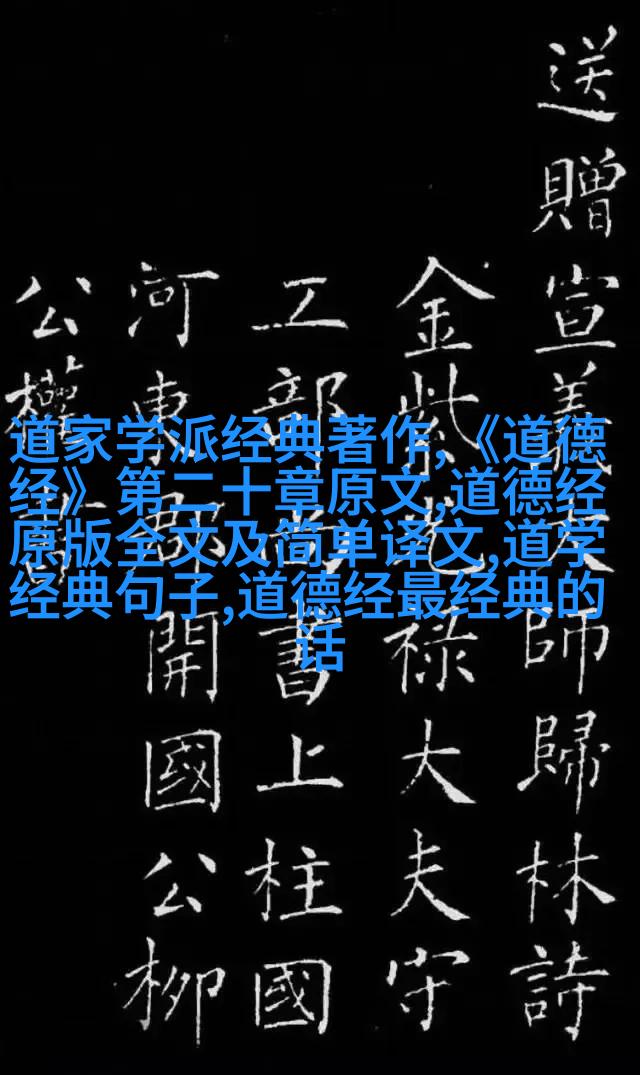 送贈宣義大師歸林詩
金紫光祿大夫守
工部尚書上柱國
河東郡開國公柳
公權書
道家学派经典著作,《道德
经》第二十章原文,道德经
原版全文及简单译文,道学
经典句子,道德经最经典的
话